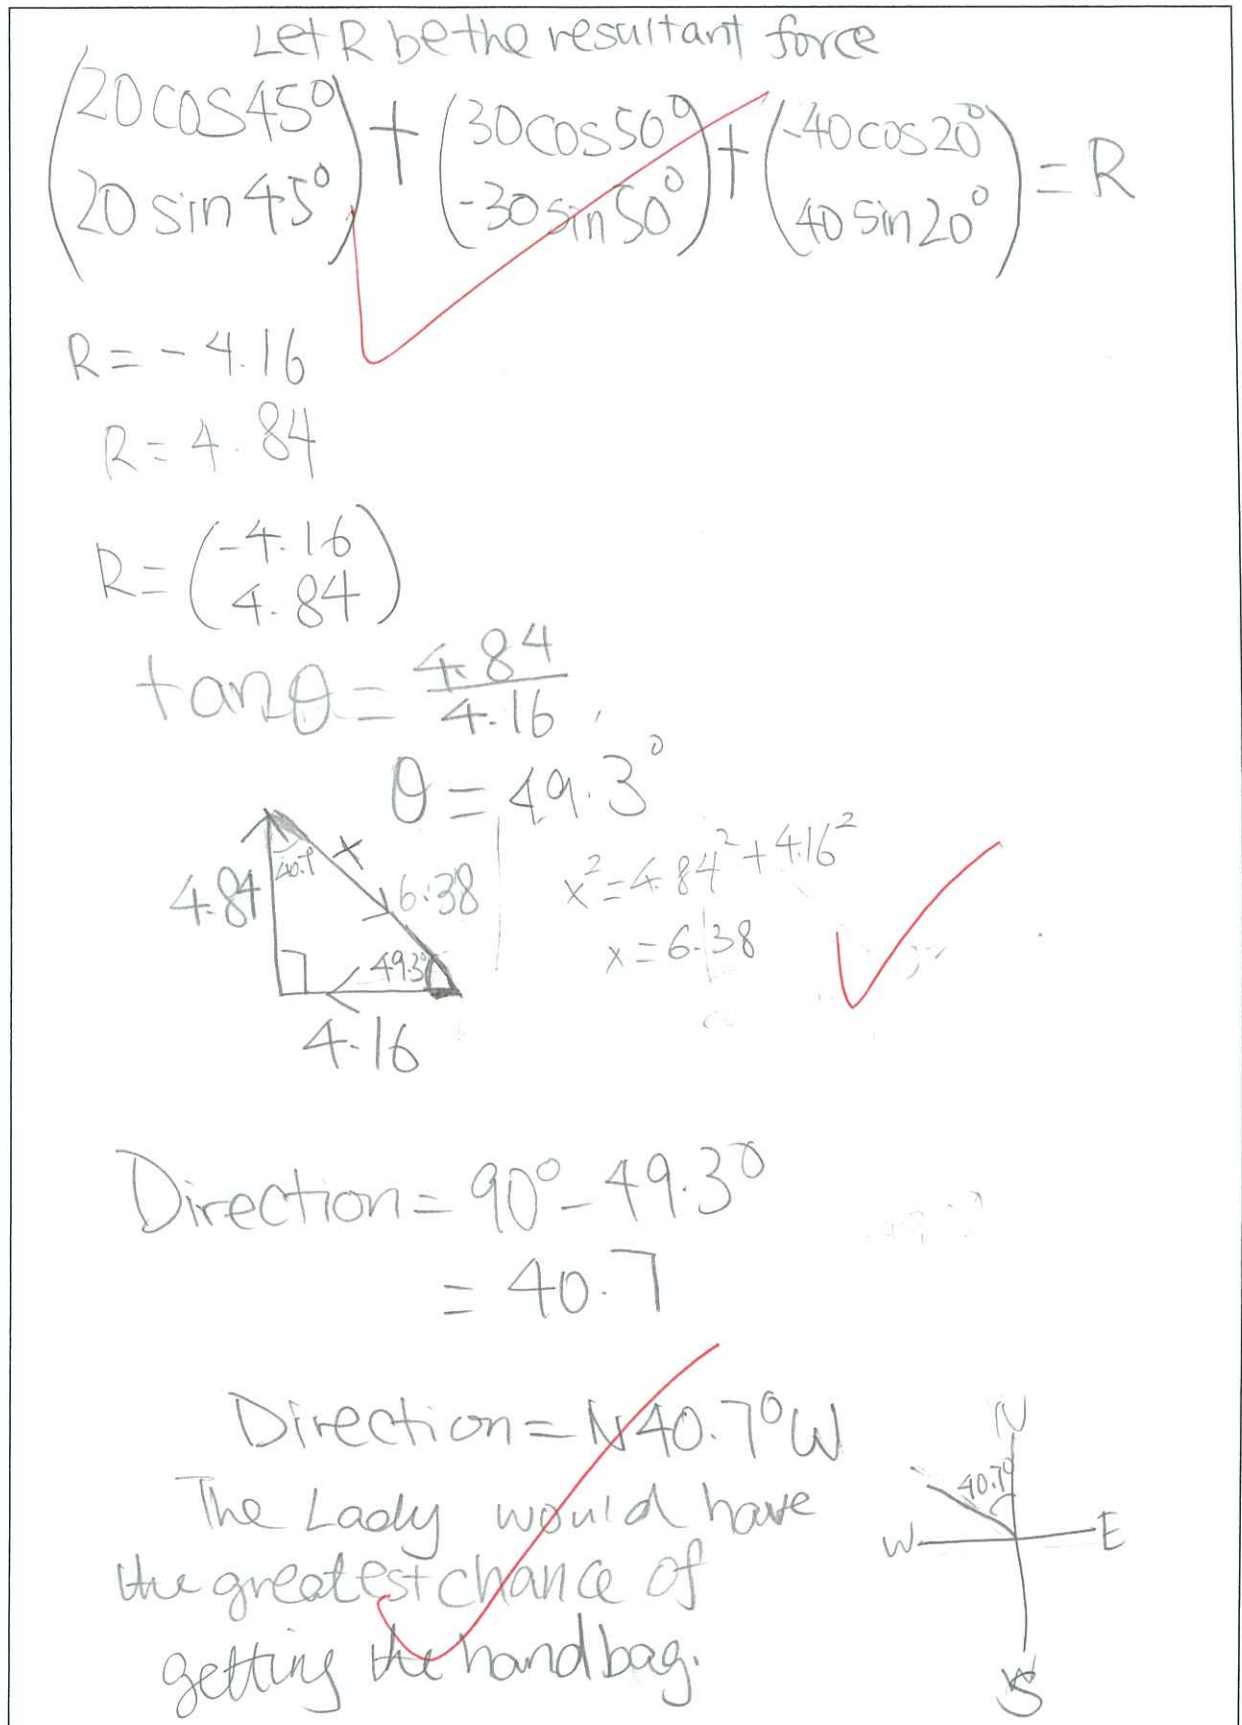 Let R be the resultant force
(20cos45° 20sin45°) + (30cos50° -30sin50°) + (-40cos20° 40sin20°) = R
R = -4.16
R = 4.84
R = (-4.16 4.84)
tanθ = 4.84/4.16
θ = 49.3°
x² = 4.84² + 4.16²
x = 6.38
40.7°
x
4.84
6.38
49.3°
4.16
Direction = 90° - 49.3°
= 40.7
Direction = N40.7°W
The Lady would have
the greatest chance of
getting the handbag.
N
40.7°
W
E
S